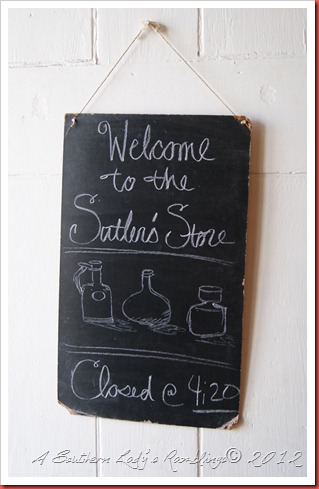 Welcome
to the
Sutler's Store
Closed @ 4:20
A Southern Lady's Ramblings© 2012